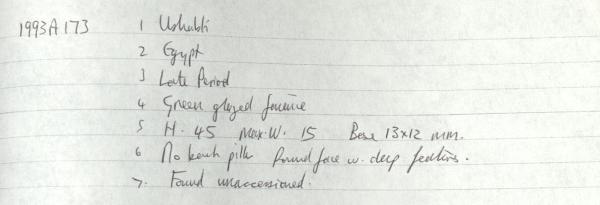 1993A173 1 Ushabti
2 Egypt
3 Late Period
4 Green glazed faience
5 H. 45 Max.W. 15 Base 13x12 mm.
6 No back pillar Round face w. deep features.
7. Found unaccessioned.